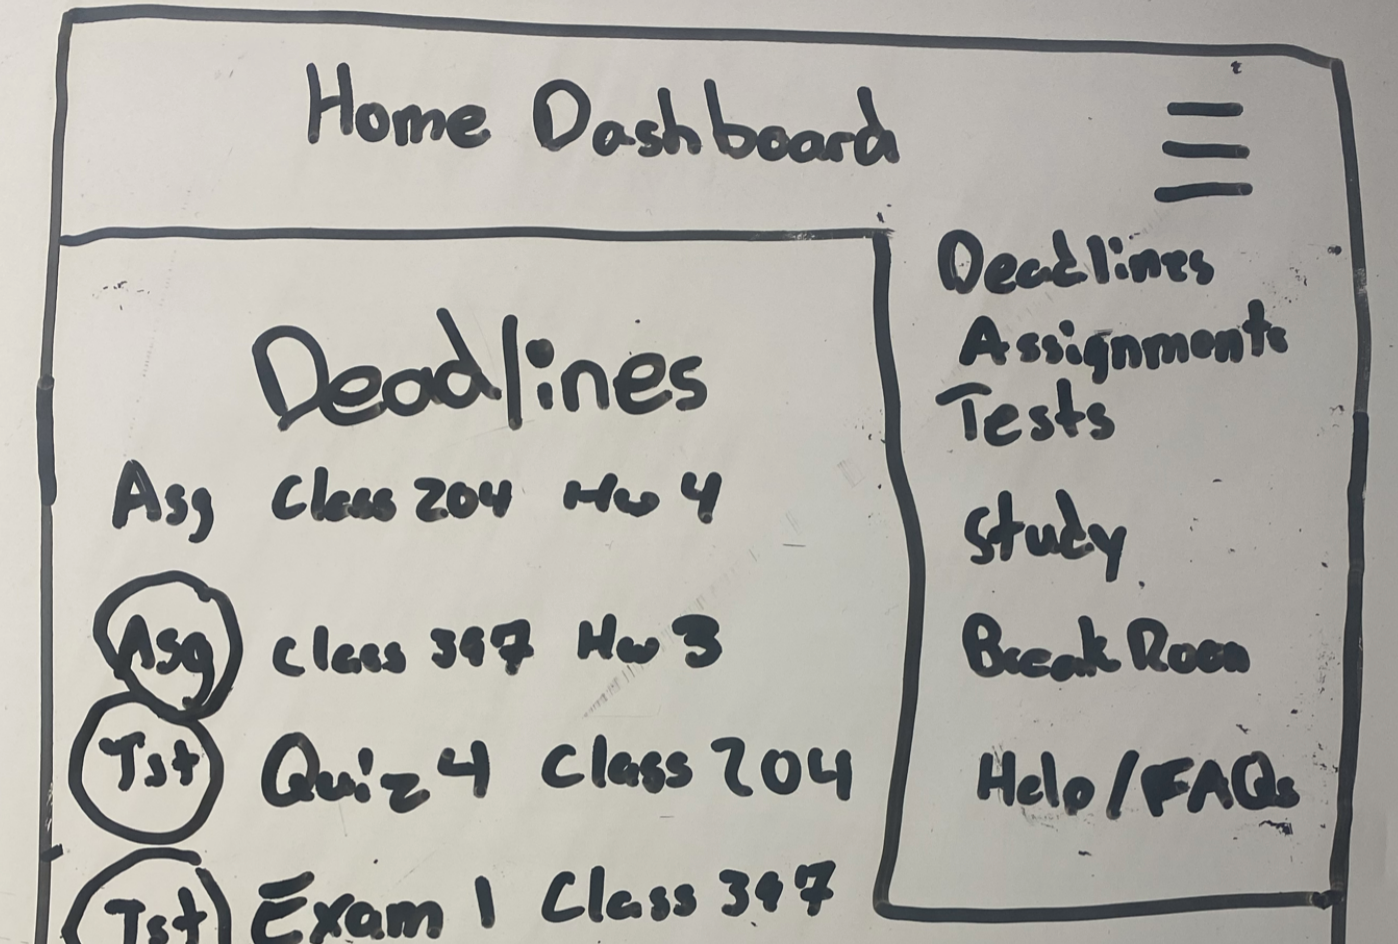 Home Dashboard
Deadlines
Asg Class 204 Hw 4
Asg Class 397 Hw 3
Tst Quiz 4 Class 204
Tst Exam 1 Class 397
Deadlines
Assignments
Tests
Study
Break Room
Help/FAQs